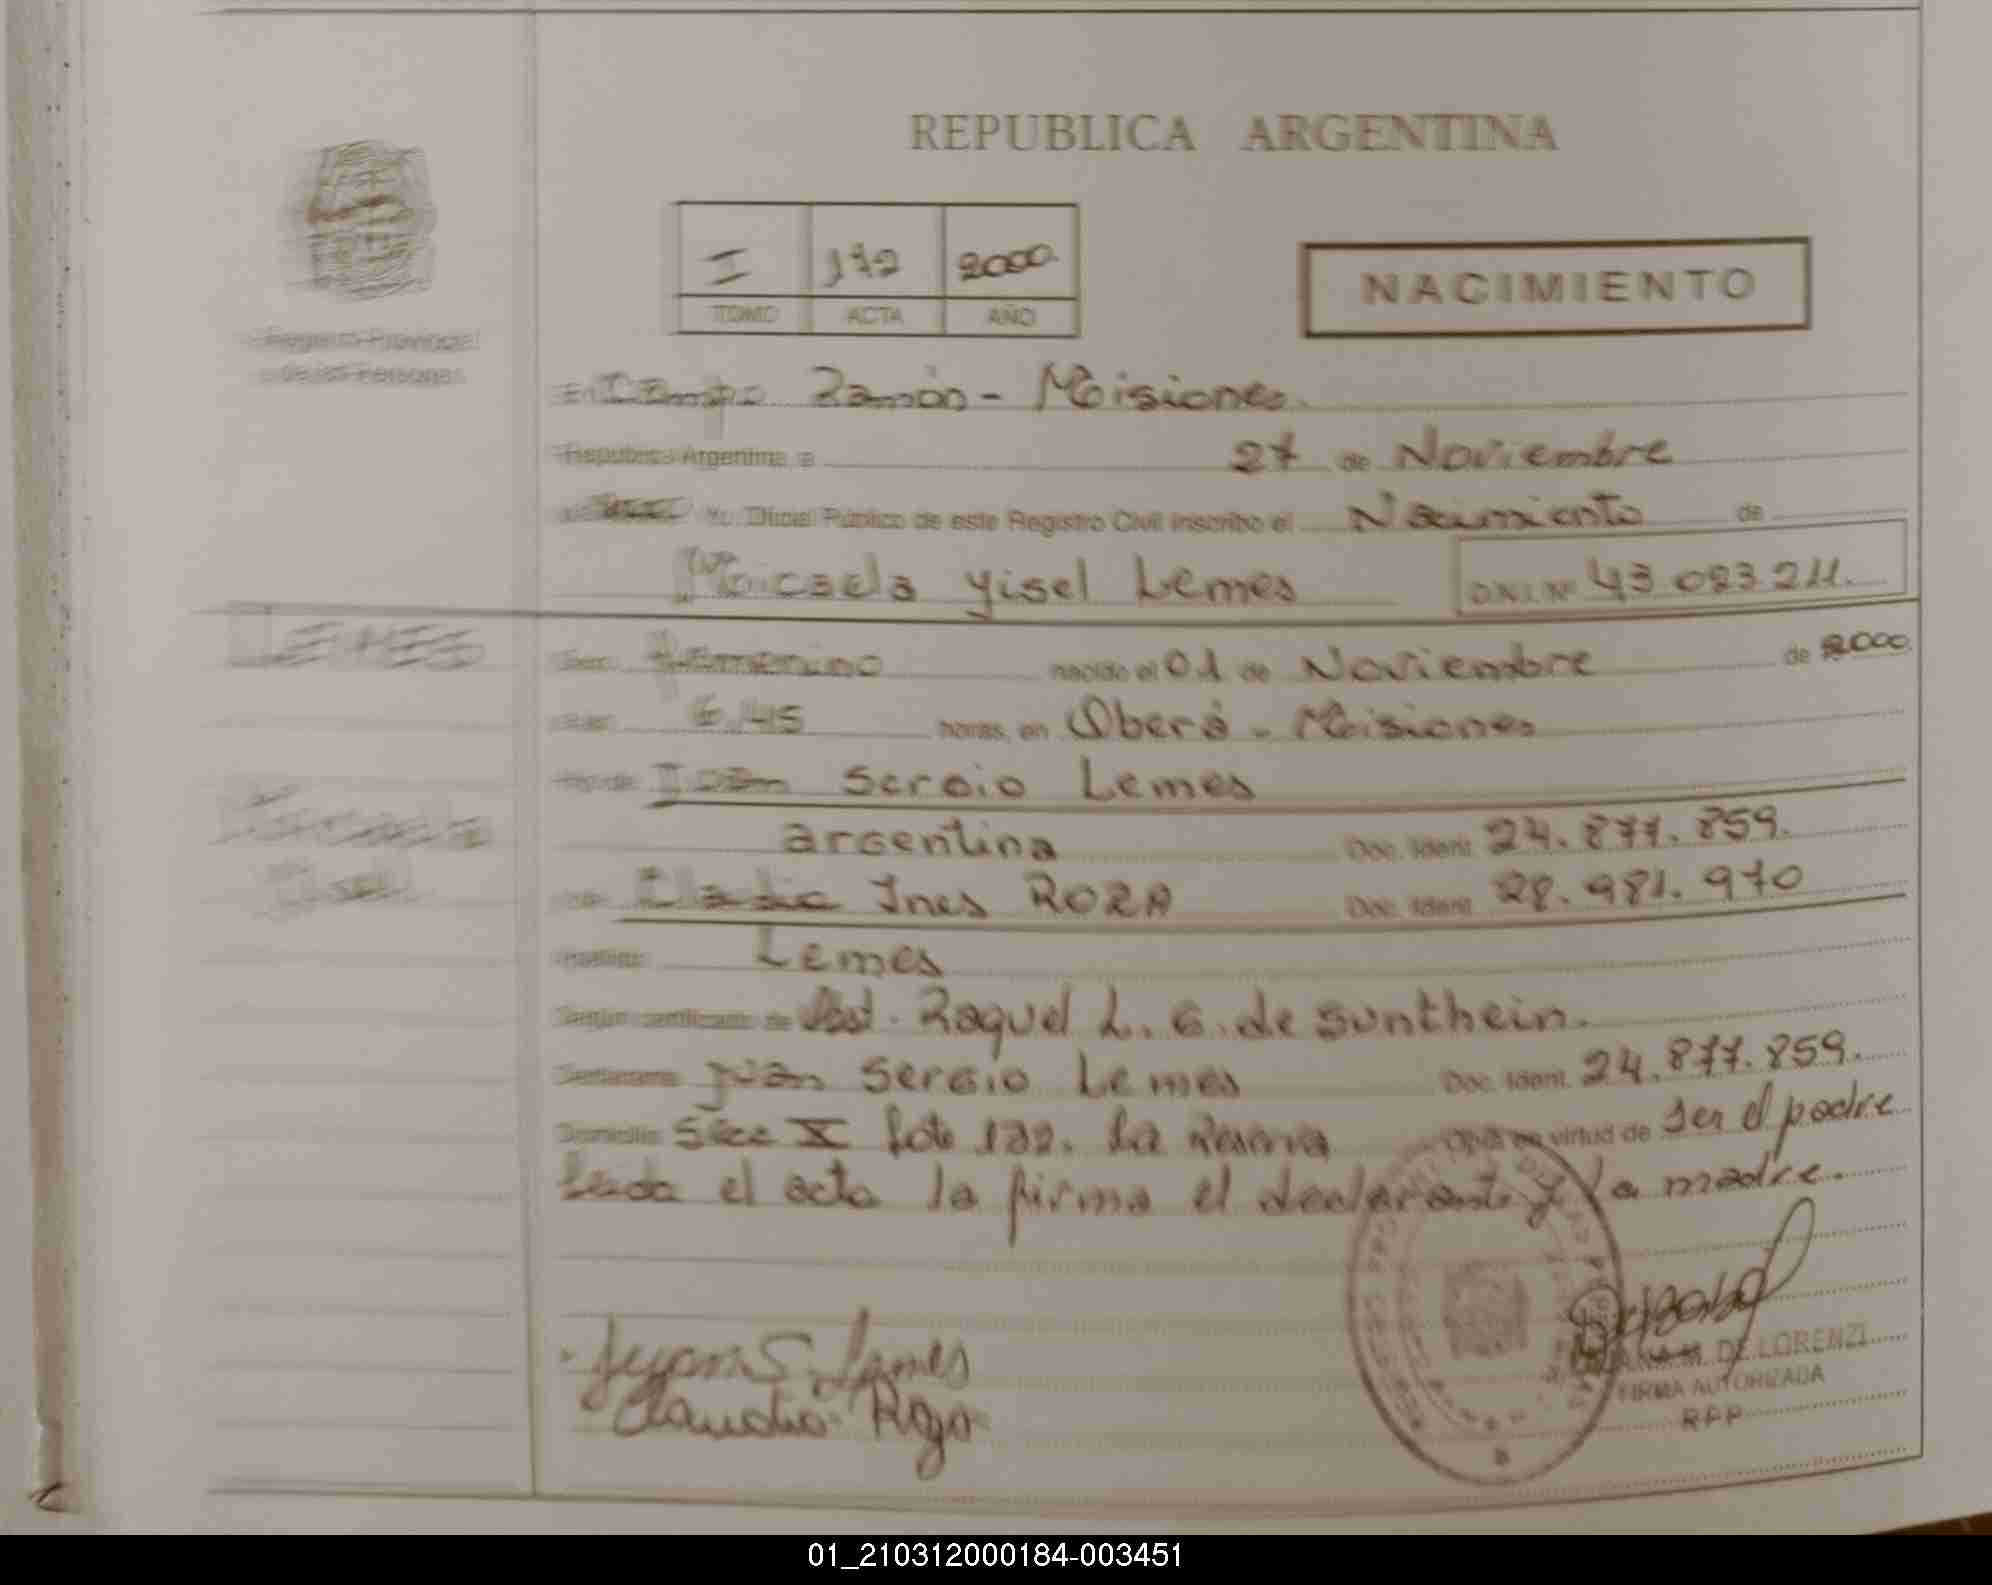 REPUBLICA ARGENTINA
I 172 2000
TOMO ACTA AÑO
NACIMIENTO
Registro Provincial
de las Personas
En Campo Ramón - Misiones
República Argentina a 27 de Noviembre
Yo, Oficial Público de este Registro Civil inscribo el Nacimiento de
Micaela Yisel Lemes D.N.I. Nº 43 023 211.
LEMES
Sexo Femenino nacido el 01 de Noviembre de 2000
6,45 horas, en Oberá - Misiones
Hijo de Juan Sergio Lemes
argentina Doc. Ident. 24.877.859.
Micaela
Yisel
Claudia Ines ROZA Doc. Ident. 28.981.970
Lemes
Según certificado de Obst. Raquel L. G. de Sunthein.
Juan Sergio Lemes Doc. Ident. 24.877.859.
Domicilio Secc X Lote 132. virtud de ser el padre
Leida el acta la firma el declarante y la madre.
Juan S. Lemes
Claudia
DE LORENZI
FIRMA AUTORIZADA
R.P.P.
01_210312000184-003451